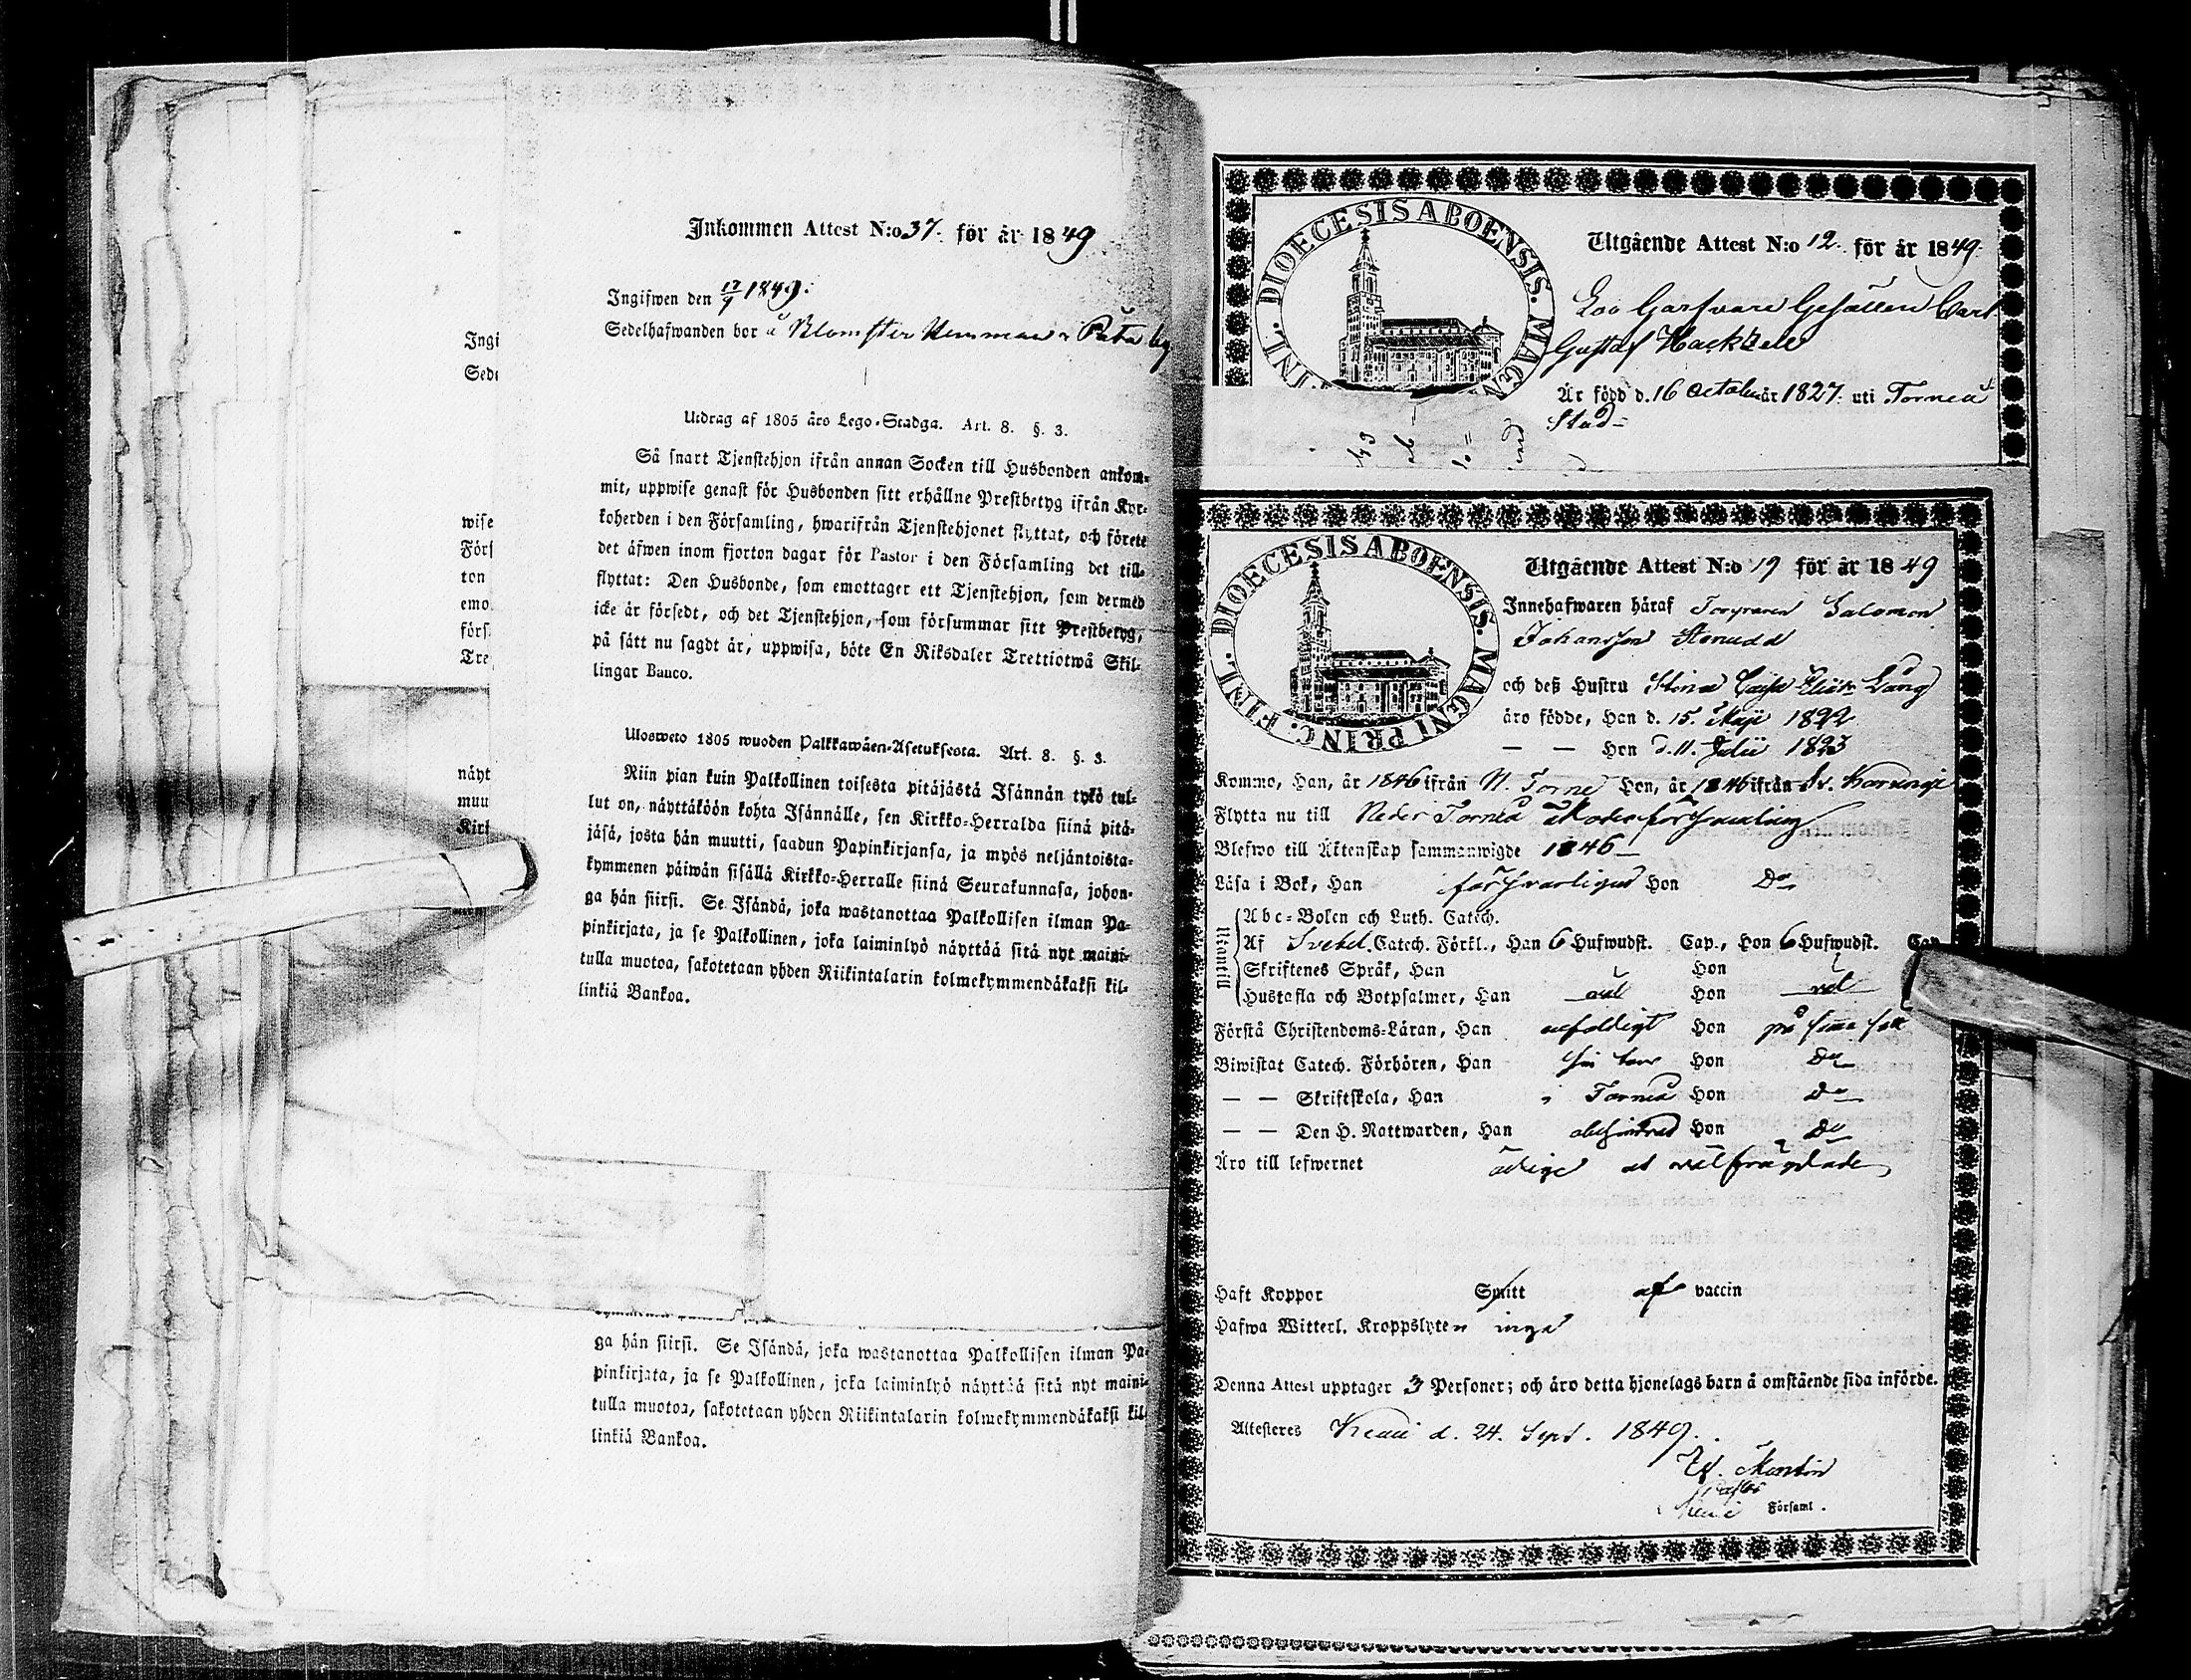 Inkommen Attest N:o 37. för år 1849
Ingifwen den 17/9 1849.
Sedelhafwanden bor å Blomster Hemman
Utdrag af 1805 års Lego-Stadga. Art. 8. §. 3.
Så snart Tjenstehjon ifrån annan Socken till Husbonden ankom-
mit, uppwise genast för Husbonden sitt erhållne Prestbetyg ifrån Kyr-
koherden i den Församling, hwarifrån Tjenstehjonet flyttat, och förete
det äfwen inom fjorton dagar för Pastor i den Församling det till-
flyttat: Den Husbonde, som emottager ett Tjenstehjon, som dermed
icke är försedt, och det Tjenstehjon, som försummar sitt Prestbetyg,
på sätt nu sagdt är, uppwisa, böte En Riksdaler Trettiotwå Skil-
lingar Banco.
Ulosweto 1805 wuoden Palkkawäen-Asetuksesta. Art. 8. §. 3.
Niin pian kuin Palkollinen toisesta pitäjästä Isännän tykö tul-
lut on, näyttäköön kohta Isännälle, sen Kirkko-Herralda siinä pitä-
jäsä, josta hän muutti, saadun Papinkirjansa, ja myös neljäntoista-
kymmenen päiwän sisällä Kirkko-Herralle siinä Seurakunnasa, johon-
ga hän siirsi. Se Isändä, joka wastanottaa Palkollisen ilman Pa-
pinkirjata, ja se Palkollinen, joka laiminlyö näyttää sitä nyt maini-
tulla muotoa, sakotetaan yhden Riikintalarin kolmekymmendäkaksi kil-
linkiä Bankoa.
ga hän siirsi. Se Isändä, joka wastanottaa Palkollisen ilman Pa-
pinkirjata, ja se Palkollinen, joka laiminlyö näyttää sitä nyt maini-
tulla muotoa, sakotetaan yhden Riikintalarin kolmekymmendäkaksi kil-
linkiä Bankoa.
Ingi
Sede
wise
Förs
ton
emo
förs
Tre
näyt
muu
Kirk
DIOECESIS ABOENSIS. MAGN FINL.
Utgående Attest N:o 12. för år 1849.
Garfvare Gesällen Carl
Gustaf Hackzell
Är född d. 16 October år 1827. uti Torneå
Stad
DIOECESIS ABOENSIS. MAGNI PRINC. FINL.
Utgående Attest N:o 19 för år 1849
Innehafwaren häraf Torparen Salomon
Johansson Stenudd
och deß Hustru Stina Cajsa Lång
äro födde, Han d. 15. Maji 1822
— — Hon d. 11. Julii 1823
Komne, Han, år 1846 ifrån N. Torne Hon, år 1846 ifrån Sv. Karungi
Flytta nu till Neder Torneå Moderförsamling
Blefwo till Äktenskap sammanwigde 1846
Läsa i Bok, Han försvarligen Hon Do
Utantill
Abc-Boken och Luth. Catech.
Af Svebel. Catech. Förkl., Han 6 Hufwudst. Cap., Hon 6 Hufwudst. Cap
Skriftenes Språk, Han Hon
Hustafla och Botpsalmer, Han väl Hon väl
Förstå Christendoms-Läran, Han enfaldigt Hon på samma sätt
Biwistat Catech. Förhören, Han Hon Do
— — Skriftskola, Han i Torneå Hon Do
— — Den H. Nattwarden, Han obehindrad Hon Do
Äro till lefwernet ärlige och välfrägdade
Haft Koppor Smitt af vaccin
Hafwa Witterl. Kroppslyten inga
Denna Attest upptager 3 Personer; och äro detta hjonelags barn å omstående sida införde.
Attesteres Kemi d. 24. Sept. 1849.
Församl.